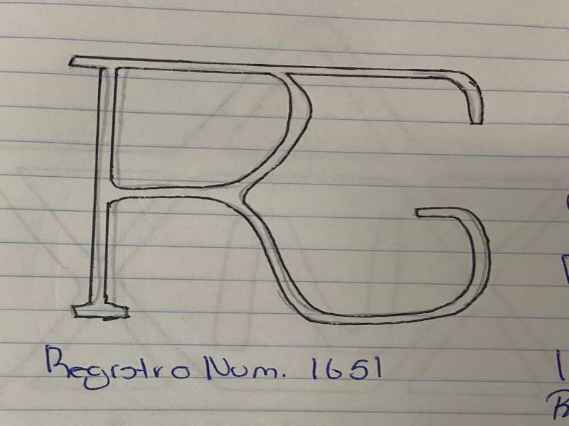 RG
Registro Num. 1651